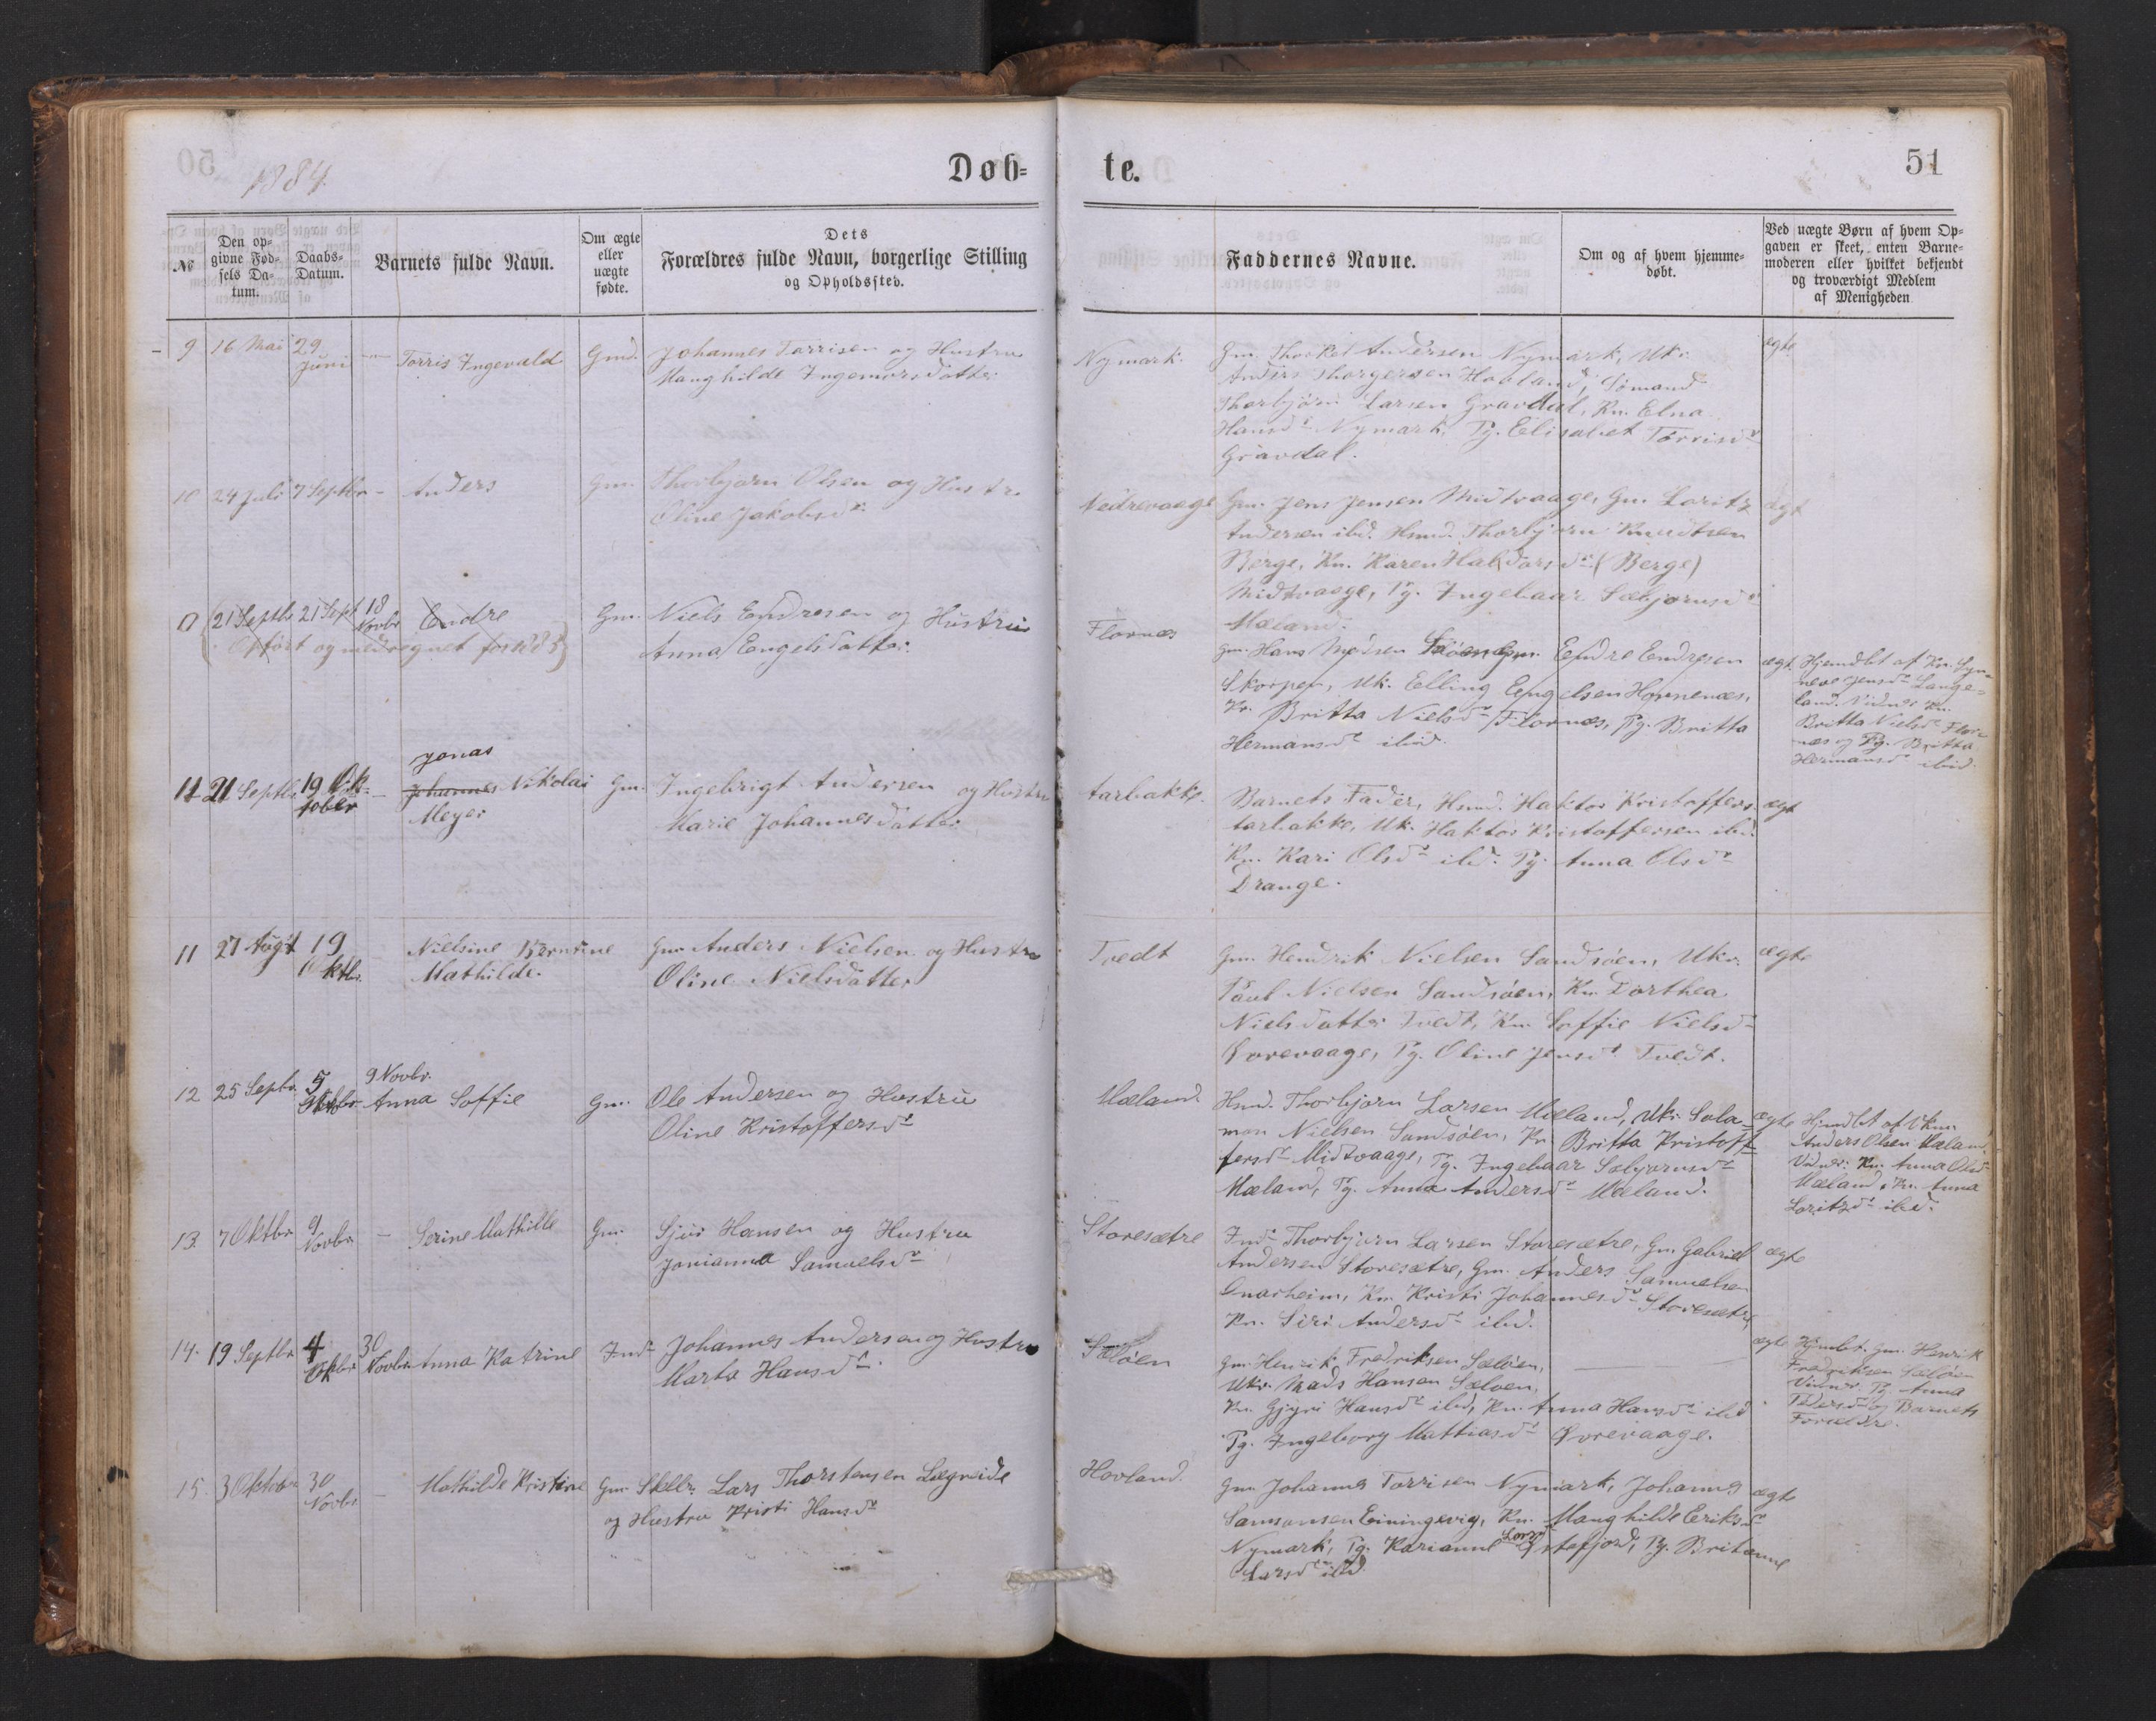 1884.
Døb-
te.
51
No
Den op-
givne Fød-
sels Da-
tum.
Daabs-
Datum.
Barnets fulde Navn.
Om ægte
eller
uægte
fødte.
Dets
Forældres fulde Navn, borgerlige Stilling
og Opholdssted.
Faddernes Navne.
Om og af hvem hjemme-
døbt.
Ved uægte Børn af hvem Op-
gaven er skeet, enten Barne-
moderen eller hvilket bekjendt
og troværdigt Medlem
af Menigheden
9 16 Mai 29 Juni Torris Ingevald Gmd. Johannes Torrisen og Hustru
Manghilde Ingemorsdatter
Nymark. Gm. Thorkel Andersen Nymark, Uk.
Anders Thorgersen Hovland, Sömand
Thorbjörn Larsen Gravdal, Kn. Elna
Hansdr Nymark, Pg. Elisabet Torrisdr
Gravdal.
ægte
10 24 Juli 7 Septbr - Anders Gm. Thorbjørn Olsen og Hustr.
Oline Jakobsdr.
Nedrevaage Gm. Jens Jensen Midtvaage, Gm. Loritz
Andersen ibd. Hsmd. Thorbjørn Knudtsen
Berge, Kn. Karen Haldorsdr (Berge)
Midtvaage, Pg. Ingebaar Sæbjørnsdr
Mæland.
ægt
21 Septbr 21 Sept 18 Novbr Endre Gm. Niels Endresen og Hustru
Opført og medregnet for No 5
Anna Engelsdatter.
Flornæs
gm. Hans Endre Endresen
Skorpen, Uk. Elling Engelsen Hornenæs,
Kr. Britta Nielsdr Flornæs, Pg. Britta
Hermansdr ibid.
ægt Hjemdbt af Kn. Syn-
neve Jensdr Lange-
land. Vidner Kn.
Britta Nielsdr Flor-
næs og Pg. Britta
Hermansdr ibid.
Jonas
11 21 Septbr 19 Ok-
tober - Johannes Nikolai Gm. Ingebrigt Andersen og Hustru
Meyer
Marie Johannesdatter
tarbakke. Barnets Fader, Hsmd. Haktor Kristoffers.
tarbakke, Uk. Haktor Kristoffersen ibd.
Kn. Kari Olsdr ibd. Pg. Anna Olsdr
Drange.
ægt
11 27 Augst 19
Oktbr. Nielsine Berntine Gm Anders Nielsen og Hustru
Mathilde.
Oline Nielsdatter
Tvedt Gm. Hendrik Nielsen Sandsöen, Ukr.
Paul Nielsen Sandsöen, Kn. Dorthea
Nielsdatter Tvedt, Kn. Soffie Nielsdr
Övrevaage, Pg. Oline Jensdr Tvedt.
ægte
12 25 Septbr. 5
Oktbr 9 Novbr.
Anna Soffie Gm. Ole Andersen og Hustru
Oline Kristoffersdr
Mæland Hsmd. Thorbjørn Larsen Mæland, Uk. Salo-
mon Nielsen Sandsöen, Kr. Britta Kristof-
fersdr Midtvaage, Pg. Ingebaar Sæbjørnsdr
Mæland, Pg. Anna Andersdr Mæland.
ægte Hjemdbt af
Anders Olsen Mæland,
Vidner: Kn. Anna Olsdr
Mæland, Kn. Anna
Loritzdr ibid.
13. 7 Oktbr 9
Novbr. - Serine Mathilde Gm. Sjur Hansen og Hustru
Janianna Samuelsdr
Storesætre Thorbjørn Larsen Storesætre, Gm. Gabriel
Andersen Storesætre, Gm. Anders Samuelsen
Onarheim, Kn. Kristi Johannesdr Storesætre,
Kn. Siri Andersdr ibd.
ægte
14. 19 Septbr 4
Oktbr 30
Novbr Anna Katrine Johannes Andersen og Hustru
Marta Hansdr.
Sælöen
Gm. Henrik Fredriksen Sælöen,
Ukr. Mads Hansen Sæløen,
Kn. Gjyri Hansdr ibd, Kn. Anna Hansdr ibd
Pg. Ingeborg Mathiasdr Övrevaage.
ægte Hjmdbt. gm. Henrik
Fredriksen Sælöen
Vidner: Pg. Anna
Pedersdr og Barnets
Forældre.
15. 3 Oktober 30
Novbr - Mathilde Kristine Gm. Lars Thorstensen Lægreide
og Hustru Kristi Hansdr
Hovland. Gm. Johannes Torrisen Nymark, Johannes
Samsonsen Einingevig, Kn. Manghilde Eriksdr
Nymark, Pg. Karianne Larsdr Ystefjord, Pg. Britanne
Larsdr ibd.
ægte